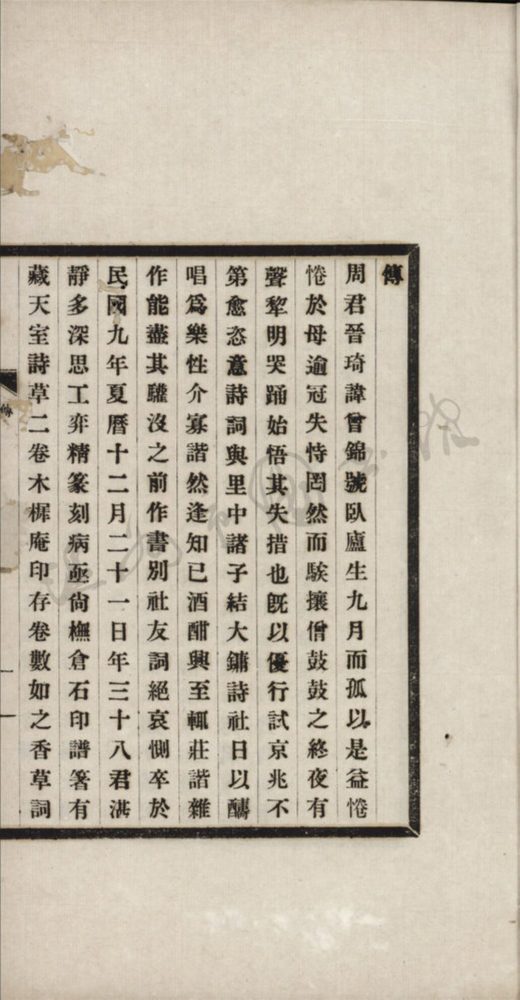 傳
周君晉琦諱曾錦號臥廬生九月而孤以是益惓
惓於母逾冠失恃罔然而騃攘僧鼓鼓之終夜有
聲犂明哭踊始悟其失措也旣以優行試京兆不
第愈恣意詩詞與里中諸子結大鏞詩社日以醻
唱爲樂性介寡諧然逢知已酒酣興至輒莊諧雜
作能盡其驩沒之前作書別社友詞絕哀惻卒於
民國九年夏曆十二月二十一日年三十八君湛
靜多深思工弈精篆刻病亟尙橅倉石印譜箸有
藏天室詩草二卷木樨庵印存卷數如之香草詞